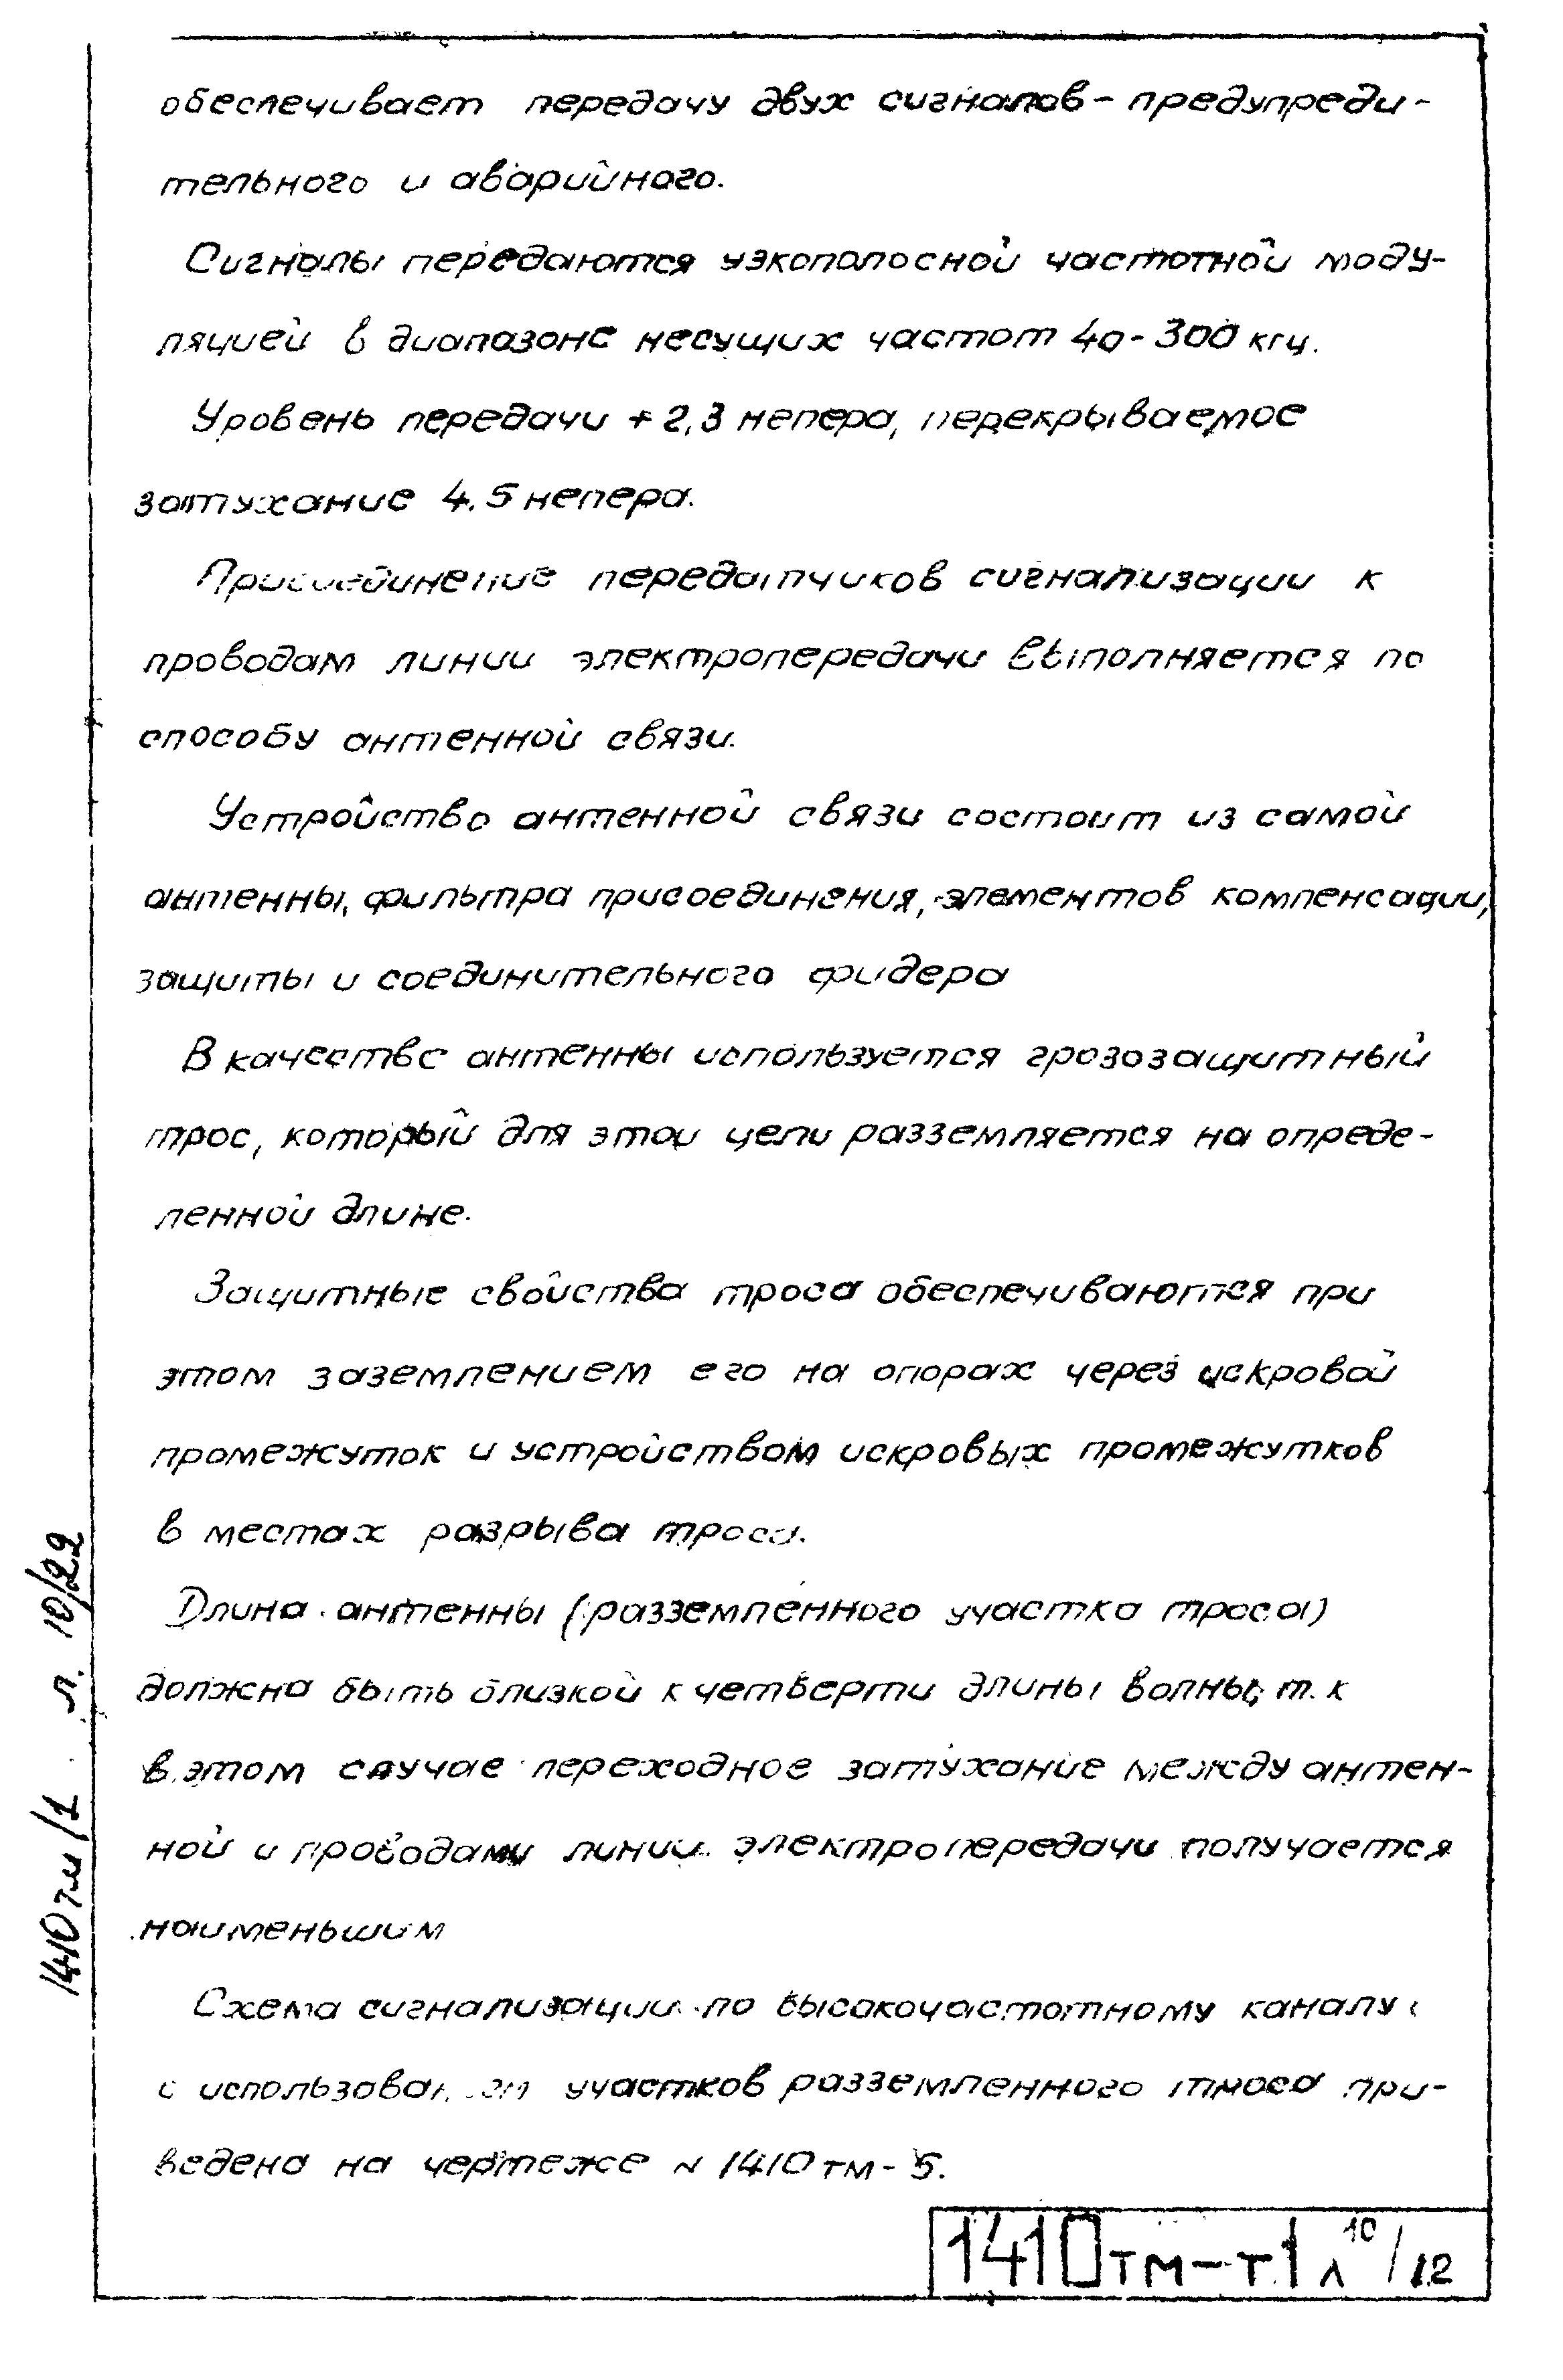 обеспечивает передачу двух сигналов - предупреди-
тельного и аварийного.
Сигналы передаются узкополосной частотной моду-
ляцией в диапазоне несущих частот 40-300 кгц.
Уровень передачи +2,3 непера, перекрываемое
затухание 4.5 непера.
Присоединение передатчиков сигнализации к
проводам линии электропередачи выполняется по
способу антенной связи.
Устройство антенной связи состоит из самой
антенны, фильтра присоединения, элементов компенсации,
защиты и соединительного фидера
В качестве антенны используется грозозащитный
трос, который для этой цели разземляется на опреде-
ленной длине.
Защитные свойства троса обеспечиваются при
этом заземлением его на опорах через искровой
промежуток и устройством искровых промежутков
в местах разрыва троса.
Длина антенны (разземленного участка троса)
должна быть близкой к четверти длины волны, т. к
в этом случае переходное затухание между антен-
ной и проводами линии электропередачи получается
наименьшим
Схема сигнализации по высокочастотному каналу
с использованием участков разземленного троса при-
ведена на чертеже N 1410тм-5.
1410тм-т1 л 10/12
1410тм/1 л. 10/22